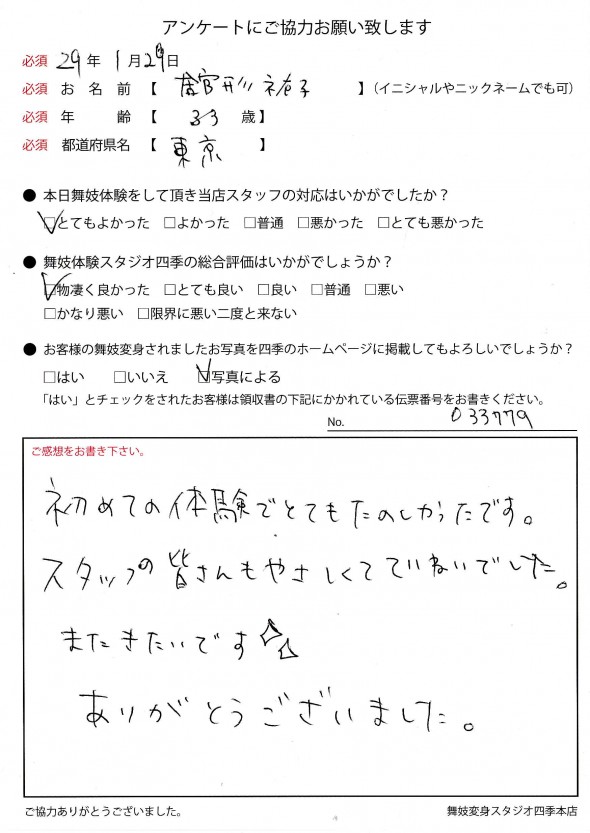 アンケートにご協力お願い致します
必須 29年 1月29日
必須 お名前【 祐子 】(イニシャルやニックネームでも可)
必須 年齢【 33 歳】
必須 都道府県名【 東京 】
● 本日舞妓体験をして頂き当店スタッフの対応はいかがでしたか?
□とてもよかった □よかった □普通 □悪かった □とても悪かった
● 舞妓体験スタジオ四季の総合評価はいかがでしょうか?
□物凄く良かった □とても良い □良い □普通 □悪い
□かなり悪い □限界に悪い二度と来ない
● お客様の舞妓変身されましたお写真を四季のホームページに掲載してもよろしいでしょうか?
□はい □いいえ □写真による
「はい」とチェックをされたお客様は領収書の下記にかかれている伝票番号をお書きください。
No. 033779
ご感想をお書き下さい。
初めての体験でとてもたのしかったです。
スタッフの皆さんもやさしくてていねいでした。
またきたいです
ありがとうございました。
ご協力ありがとうございました。 舞妓変身スタジオ四季本店